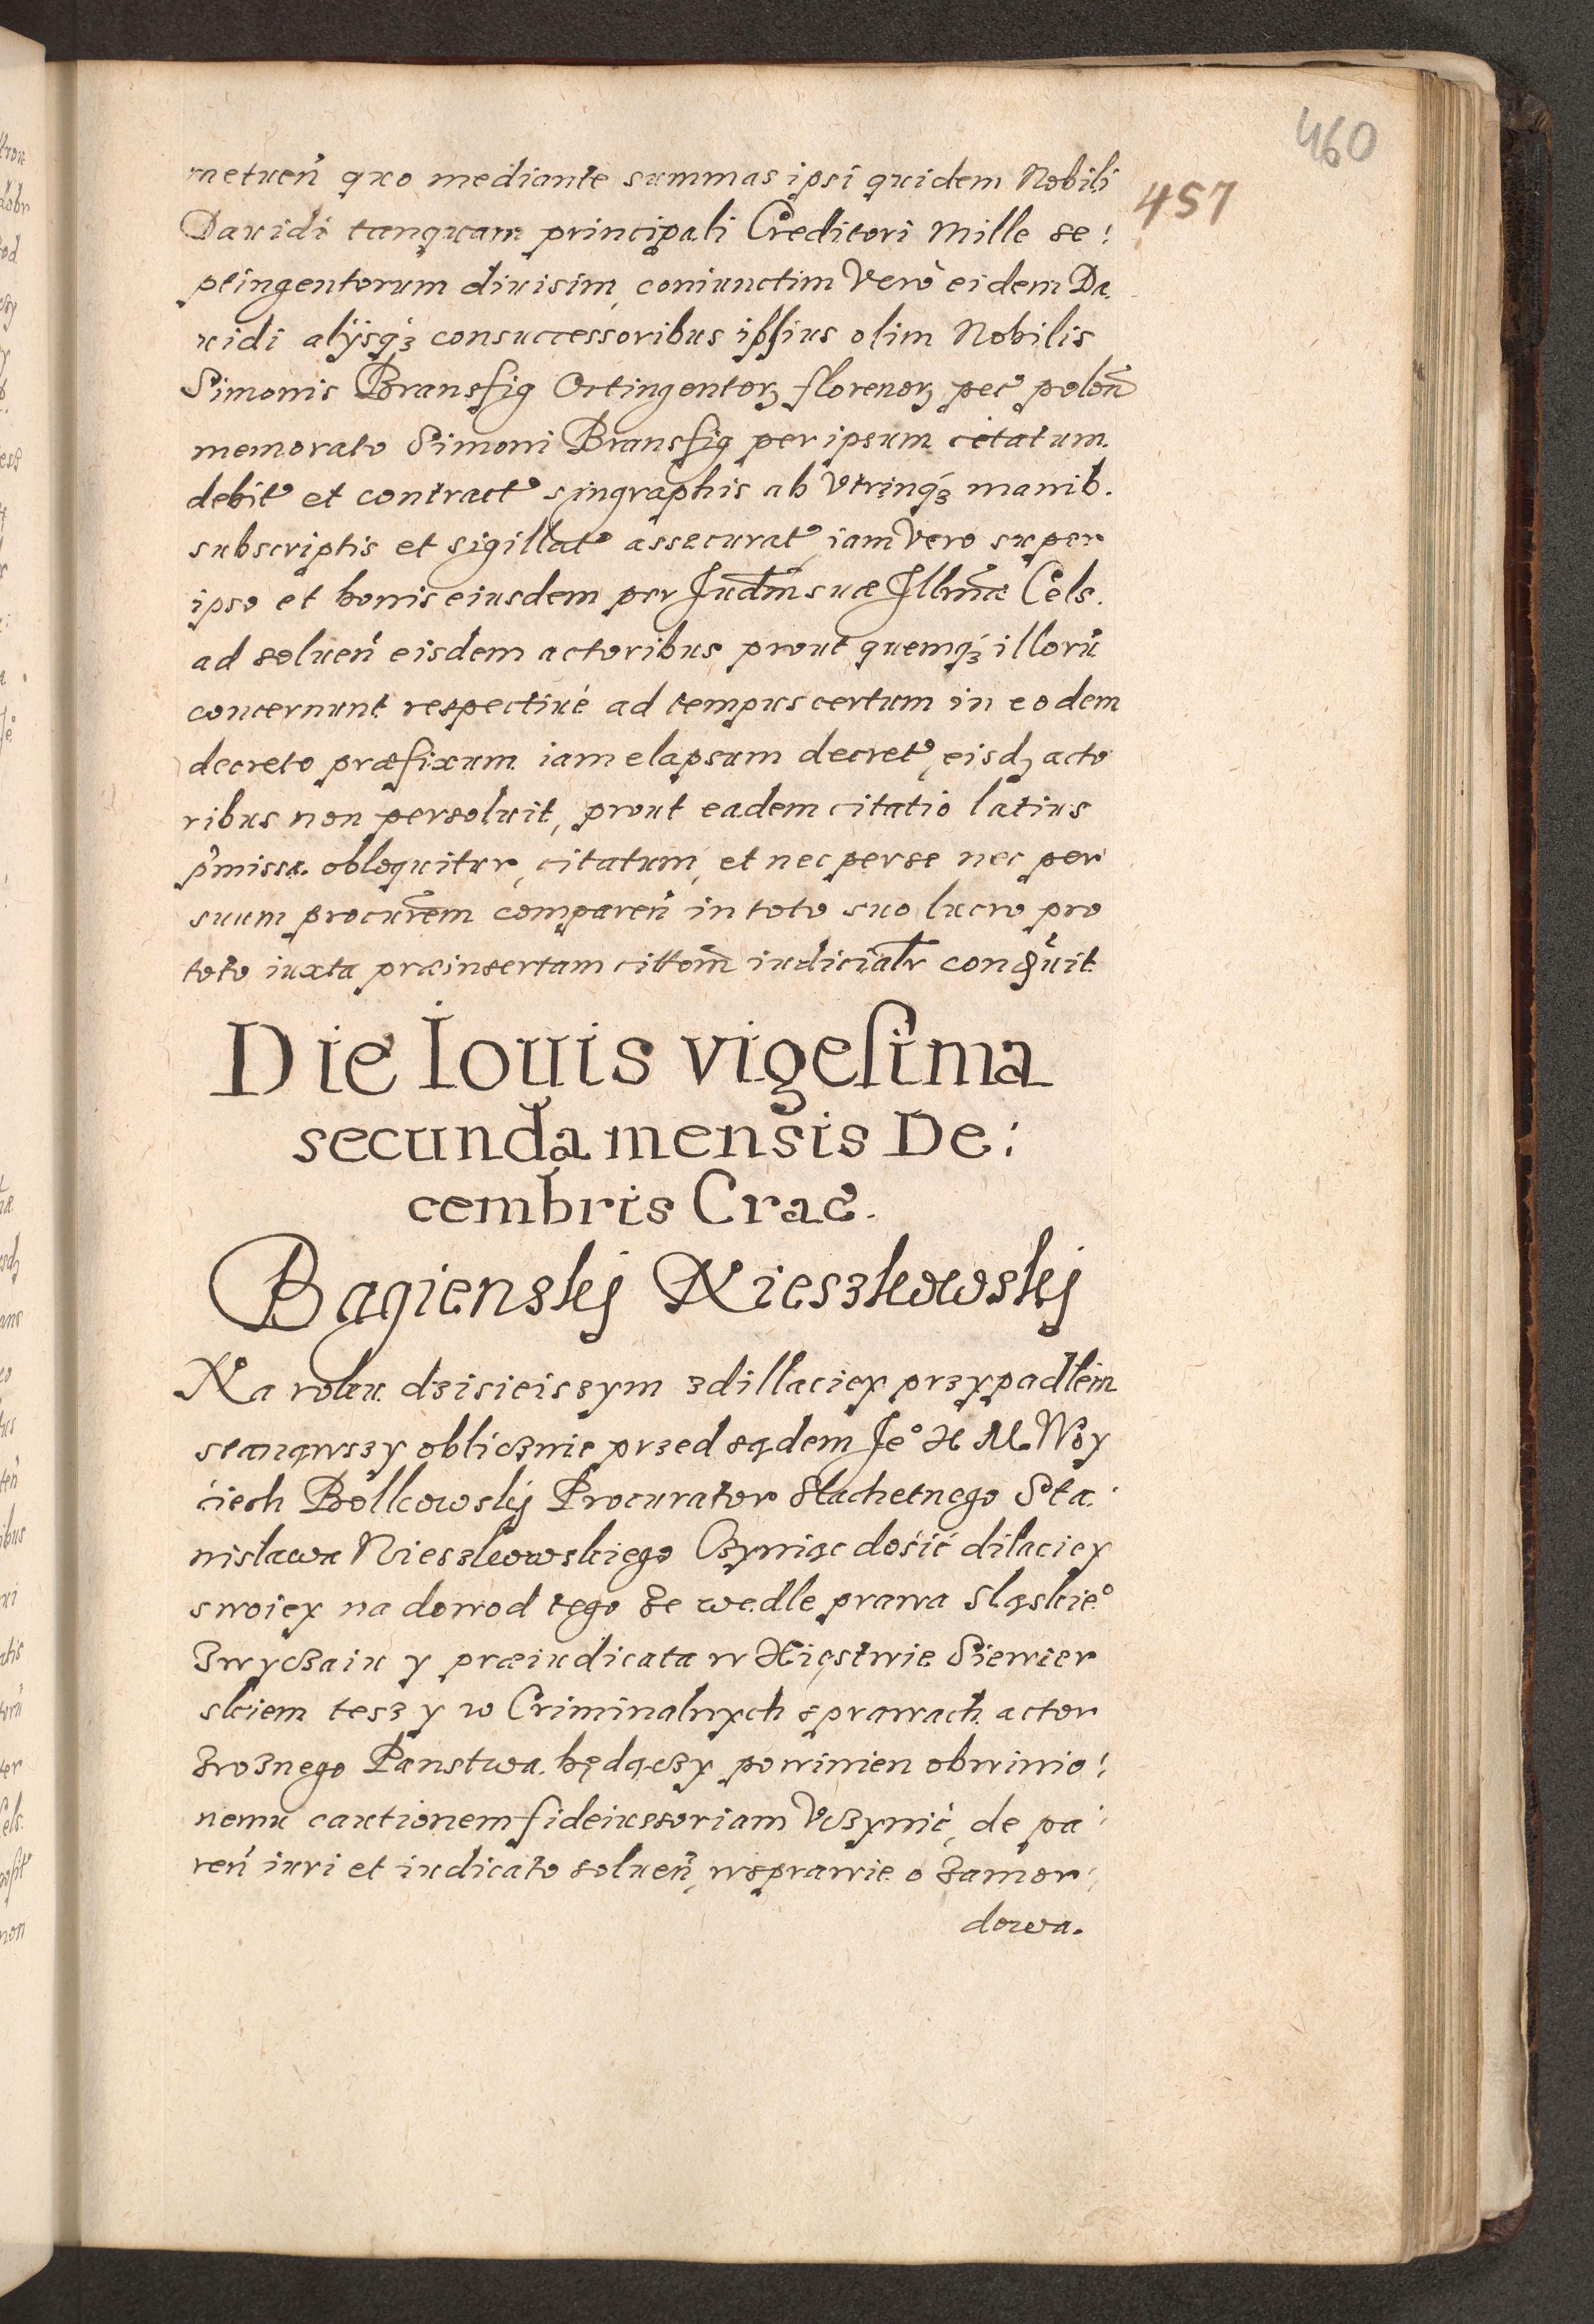 460
457
metuen̄ quo mediante summas ipsi quidem Nobili
Dauidi tanquam principali Creditori Mille se:
ptingentorum diuisim, coniunctim Verò eidem Da
uidi alÿsqꝫ consuccessoribus ipsius olim Nobilis
Simonis Bransfig Octingentorꝫ florenorꝫ pec̄ polon̄
memorato Simoni Bransfig per ipsum citatum
debit̄ et contract̄ singraphis ab Vtrinqꝫ manib.
subscriptis et sigillat̄ assecurat̄ iam Vero super
ipso et bonis eiusdem per Iudm̄ suæ Illm̄æ Cels.
ad soluen̄ eisdem actoribus prout quemqꝫ illorū
concernunt respectiuè ad tempus certum in eodem
decreto præfixum iam elapsum decret̄, eisdꝫ acto
ribus non persoluit, prout eadem citatio latius
p̄missa obloquitur, citatum, et nec per se nec per
suum procurēm comparen̄ in toto suo lucro pro
toto iuxta præinsertam cittōm iudicialr̄ condēuit
Die Iouis vigesima
secunda mensis De:
cembris Crac̄.
Bagienskj Nieszkowskj
Na roku dzisieiszym zdillaciey przypadłem
stanąwszy oblicznie przed sądem Je° X M. Woy
ciech Bolkowskj Procurator Slachetnego Sta:
nisława Nieszkowskiego Czyniąc dosić dilaciey
swoiey na dowod tego że wedle prawa Sląskie°
Zwyczaiu y præiudicata w Xięstwie Siewier
skiem tesz y w Criminalnych sprawach actor
Zroznego Panstwa będączy powinien obwinio:
nemu cautionem fideiussoriam Vczynić, de pa:
ren̄ iuri et iudicato soluen̄, wsprawie o Zamor:
dowa.